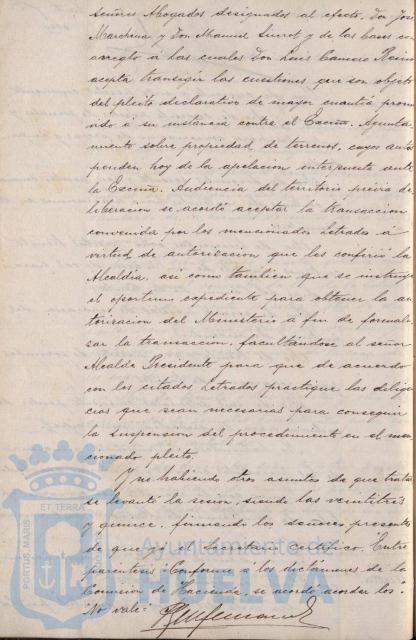 señores Abogados designados al efecto, Don José
Marchena y Don Manuel Siurot y de las bases con
arreglo á las cuales Don Luis Camero Reino
acepta transigir las cuestiones que son objeto
del pleito declarativo de mayor cuantía promo
vido á su instancia contra el Excmo. Ayunta
miento sobre propiedad de terrenos, cuyos autos
penden hoy de la apelacion interpuesta ante
la Excma. Audiencia del territorio previa de
liberacion se acordó aceptar la transaccion
convenida por los mencionados Letrados á
virtud de autorizacion que les confirió la
Alcaldía, así como tambien que se instruya
el oportuno expediente para obtener la au
torizacion del Ministerio á fin de formali
sar la transaccion, facultándose al señor
Alcalde Presidente para que de acuerdo
con los citados Letrados practique las diligen
cias que sean necesarias para conseguir
la suspension del procedimiento en el men
cionado pleito.
Y no habiendo otros asuntos de que tratar
se levantó la sesion, siendo las veintitrés
y quince, firmando los señores presentes
de que yo el Secretario certifico. Entre
paréntesis "Conforme á los dictámenes de la
Comision de Hacienda, se acordó acordar los"
"No vale"
PORTUS MARIS
ET TERRÆ
Ayuntamiento de
HUELVA